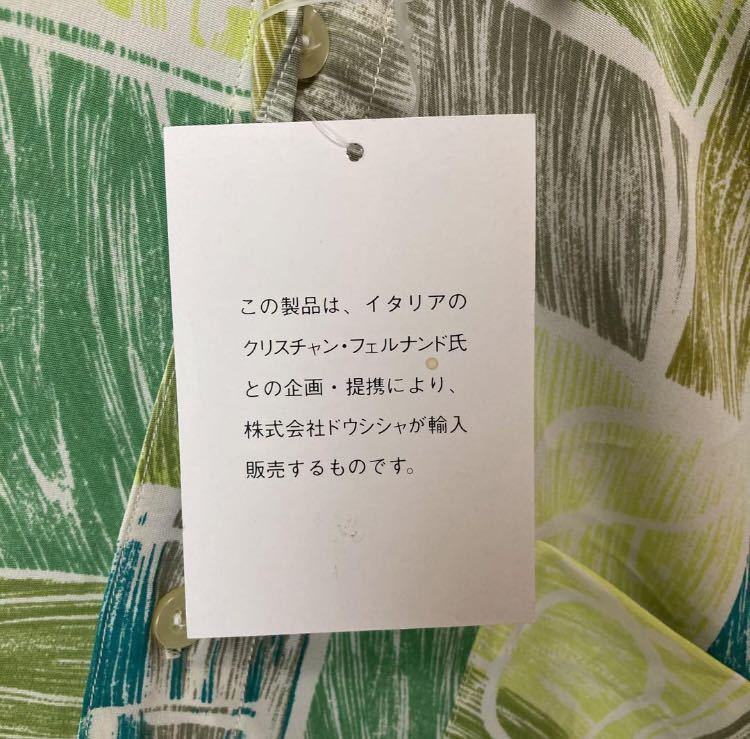 この製品は、イタリアの
クリスチャン・フェルナンド氏
との企画・提携により、
株式会社ドウシシャが輸入
販売するものです。